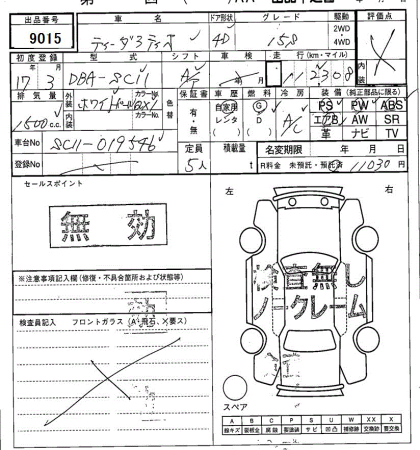 出品番号 車名 ドア形状 グレード 駆動 評価点
9015 ティーダラティオ 4D 15S 2WD 4WD
初度登録 型式 シフト 車検 走行(km・マイル)
17年 3月 DBA-SC11 A/ 年 月 112308
排気量 外装 カラーNo. 色替 保証書 車歴 燃料 冷房 装備(純正部品に限る)
1500c.c. ホワイトパール QX1 有・無 自家用 G A/C PS PW ABS
内装 カラーNo. レンタ D エアB AW SR
革 ナビ TV
車台No SC11-019546 定員 積載量 名変期限 年 月 日
登録No 5人 t R料金 未預託・預託済 11030円
セールスポイント
無効
左 右
※注意事項記入欄(修復・不具合箇所および状態等)
検査員記入 フロントガラス(A,飛石、X要ス)
検査無し
ノークレーム
スペア
A B C P S U W X XX
線キズ 要板金 腐蝕 要塗装 サビ 凹凸 補修跡 交換跡 要交換